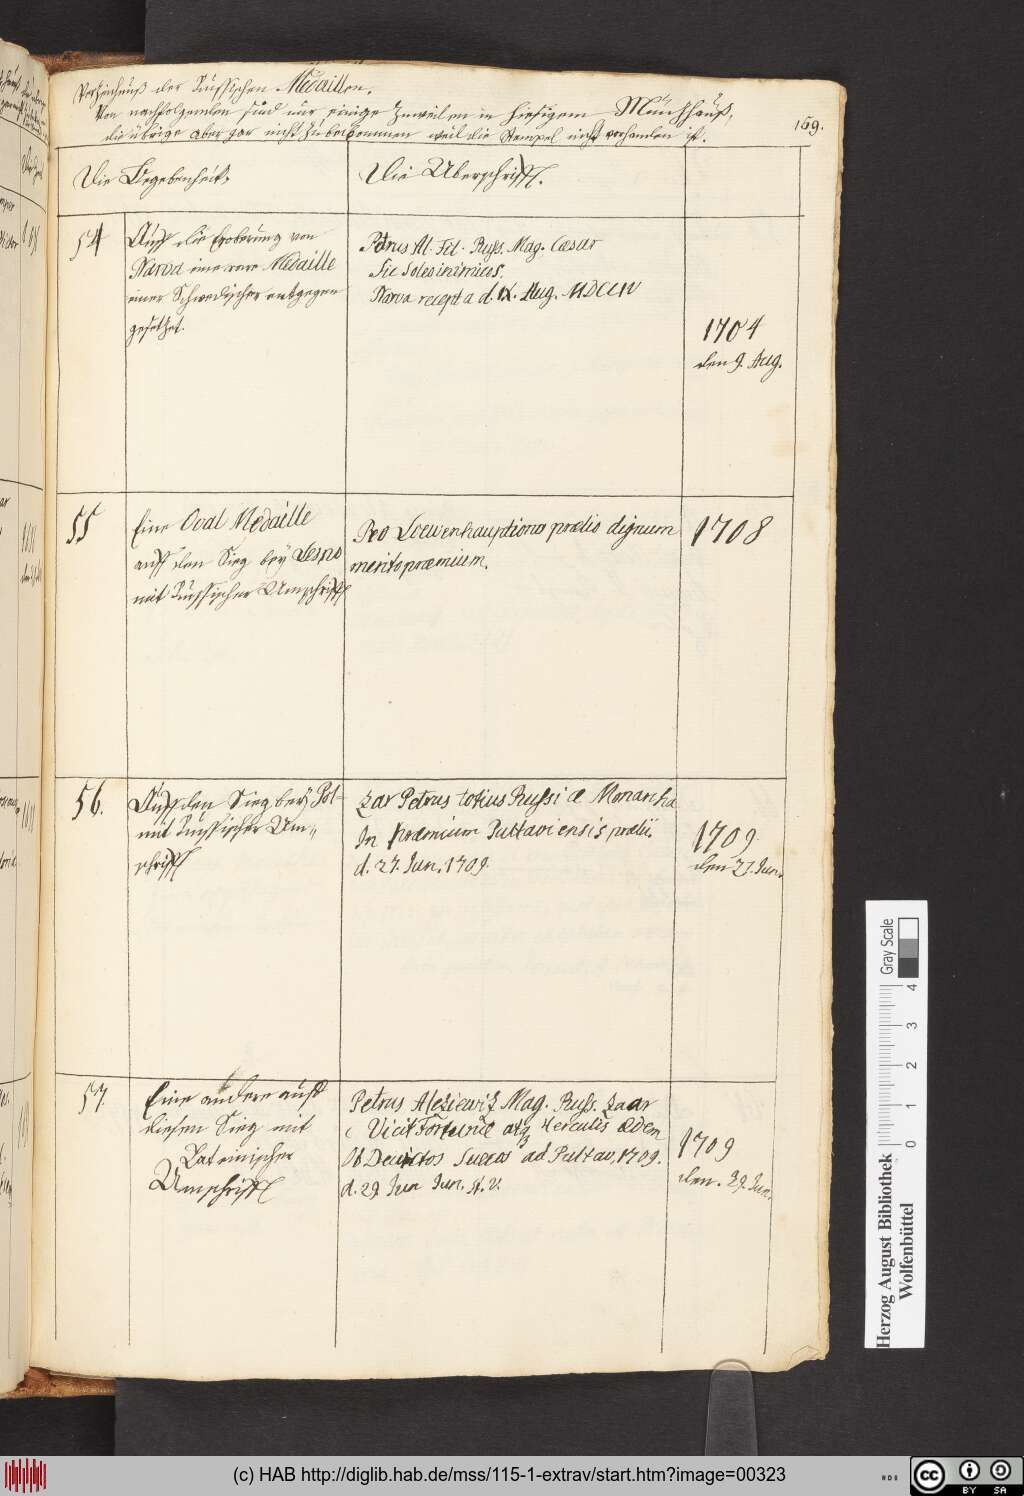 Verzeichnuß der Rußischen Medaillen.
Von nachfolgenden sind nur einige zuweilen in hiesigem Müntzhauß,
die übrige aber gar nicht zu bekommen weil die Stempel nicht vorhanden ist.
169.
Die Begebenheit.
Die Überschrifft.
54
Auff die Eroberung von
Narva eine rare Medaille
einer Schwedischen entgegen
gesetzet.
Petrus Al. Fil. Russ. Mag. Cæsar
Sic soles inimicos.
Narva recepta d. IX. Aug. MDCCIV
1704
den 9. Aug.
55
Eine Oval Medaille
auff den Sieg bey Lesno
mit Rußischer Umschrifft
Pro Loewenhauptiono prælio dignum
merito præmium.
1708
56.
Auff den Sieg bey Pol-
mit Rußischer Um„
schrifft
Zar Petrus totius Russiæ Monarcha
In præmium Pultaviensis prælii.
d. 27. Jun. 1709.
1709.
den 27. Jun.
57.
Eine andere auff
diesen Sieg mit
Lateinischer
Umschrifft
Petrus Alexiewiz Mag. Russ. Zaar
Vicit Fortunæ atq Herculis æden
Ob Devictos Suecos ad Pultav, 1709.
d. 29 Jun Jun. st. v.
1709
den. 29. Jun.
Gray Scale
0 1 2 3 4
Herzog August Bibliothek
Wolfenbüttel
(c) HAB http://diglib.hab.de/mss/115-1-extrav/start.htm?image=00323
CC BY SA